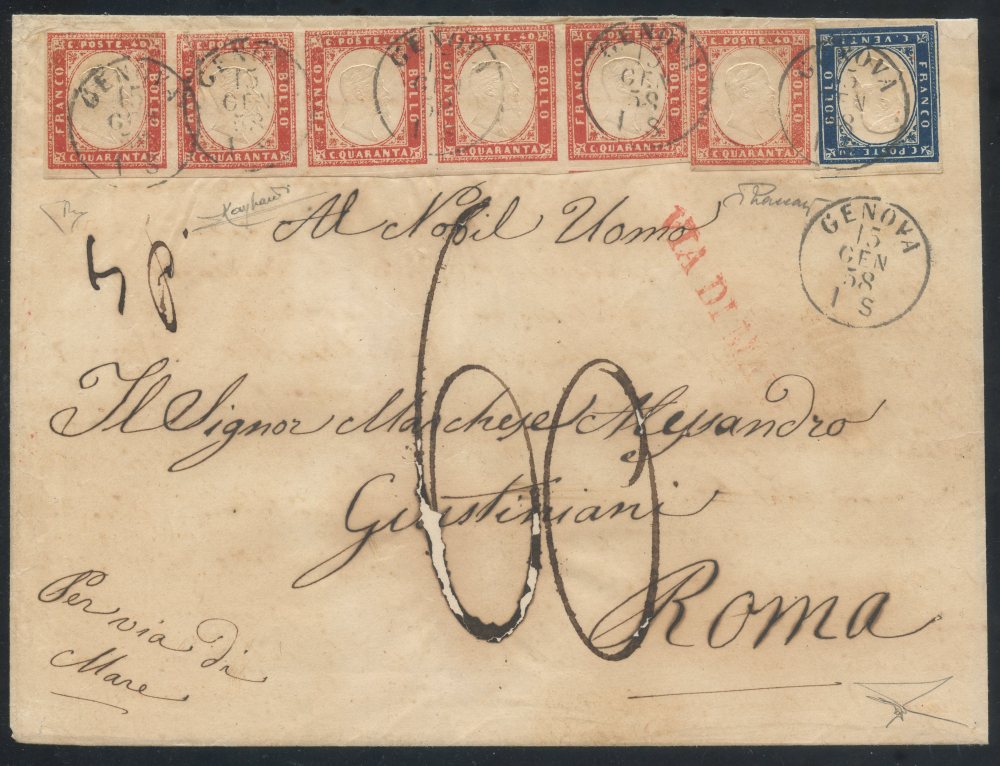 C. POSTE. 40 C. POSTE. 40 C. POSTE. 40 C. POSTE. 40 C. POSTE. 40 C. POSTE. 40 C. VENTI
FRANCO BOLLO FRANCO BOLLO FRANCO BOLLO FRANCO BOLLO FRANCO BOLLO FRANCO BOLLO BOLLO FRANCO
C. QUARANTA C. QUARANTA C. QUARANTA C. QUARANTA C. QUARANTA C. QUARANTA C. POSTE. 20
GENOVA GENOVA GENOVA GENOVA GENOVA
GENOVA
15
GEN
58
1 S
Al Nobil Uomo
VIA DI MA
Il Signor Marchese Alessandro
Giustiniani
Roma
60
Per via di
Mare